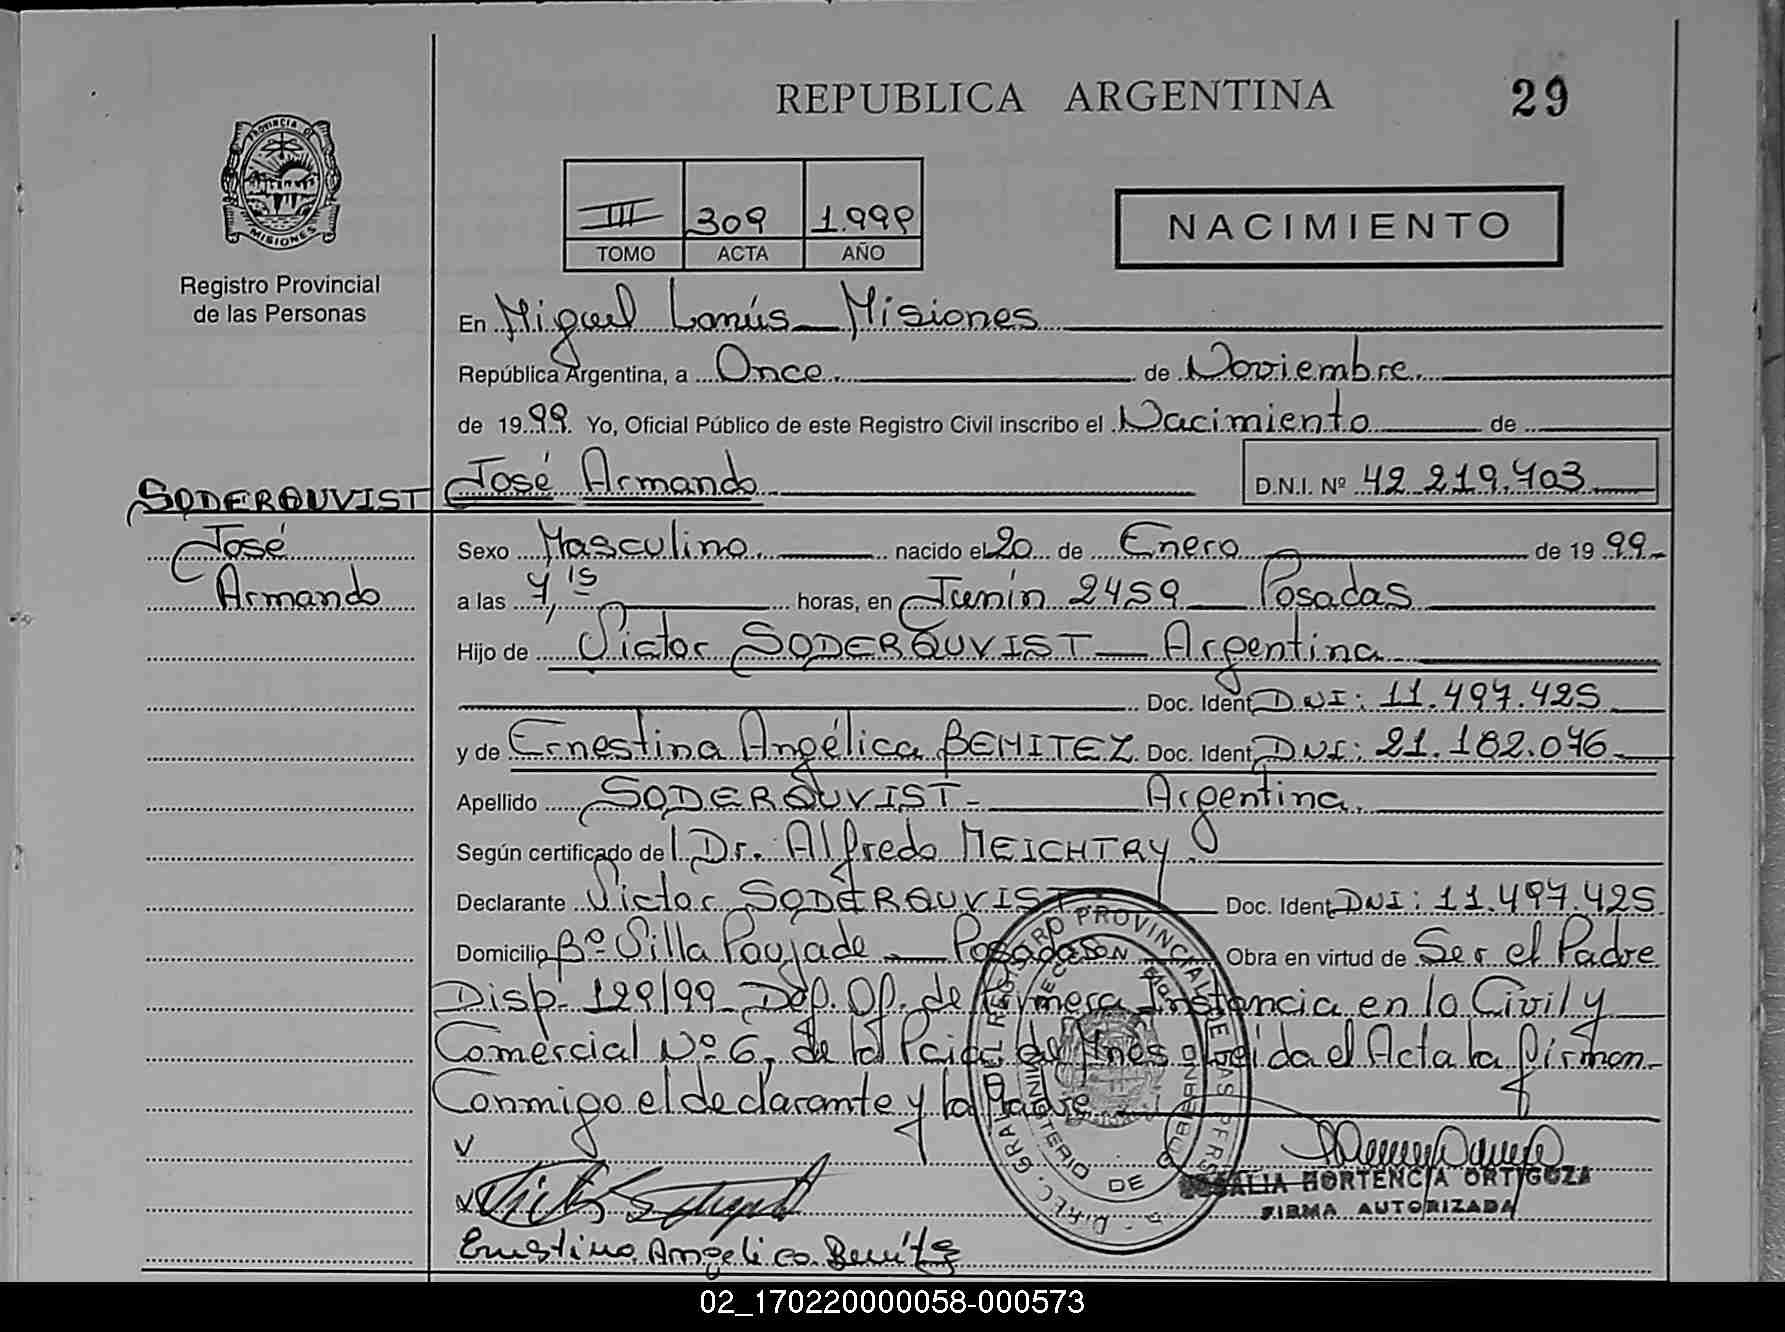 REPUBLICA ARGENTINA
29
PROVINCIA DE
MISIONES
Registro Provincial
de las Personas
III 309 1.999
TOMO ACTA AÑO
NACIMIENTO
En Miguel Lanús Misiones
República Argentina, a Once de Noviembre
de 19 99 Yo, Oficial Público de este Registro Civil inscribo el Nacimiento de
SODERQUVIST José Armando D.N.I. Nº 42 219.403
José
Armando
Sexo Masculino nacido el 20 de Enero de 19 99
a las 4,15 horas, en Junín 2459 Posadas
Hijo de Victor SODERQUVIST Argentina
Doc. Ident DNI: 11.497.425
y de Ernestina Angélica BENITEZ Doc. Ident DNI: 21.182.076
Apellido SODERQUVIST Argentina
Según certificado del Dr. Alfredo MEICHTRY
Declarante Victor SODERQUVIST Doc. Ident DNI: 11.497.425
Domicilio Bº Villa Poujade Posadas Obra en virtud de Ser el Padre
Disp. 129/99 Def. Of. de Primera Instancia en lo Civil y
Comercial Nº 6, de la Pcia de Mnes leida el Acta la firman
Conmigo el declarante y la Madre
DIREC. GRAL DEL REGISTRO PROVINCIAL DE LAS PERSONAS
MINISTERIO DE GOBIERNO
ROSALIA HORTENCIA ORTIGOZA
FIRMA AUTORIZADA
Ernestina Angélica Benítez
02_170220000058-000573